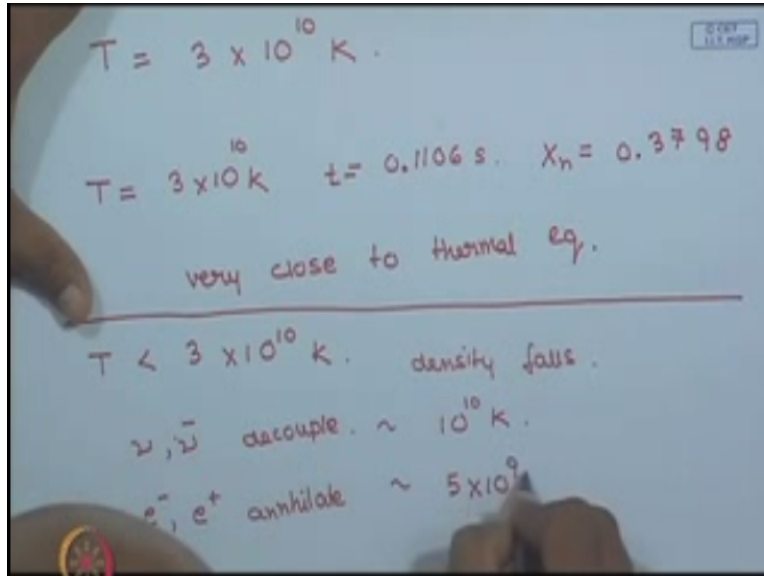 T = 3 × 10¹⁰ K.
T = 3 × 10¹⁰ K t = 0.1106 s. Xₙ = 0.3798
very close to thermal eq.
T < 3 × 10¹⁰ K. density falls.
ν, ν̄ decouple. ~ 10¹⁰ K.
e⁻, e⁺ annhilate ~ 5×10⁹